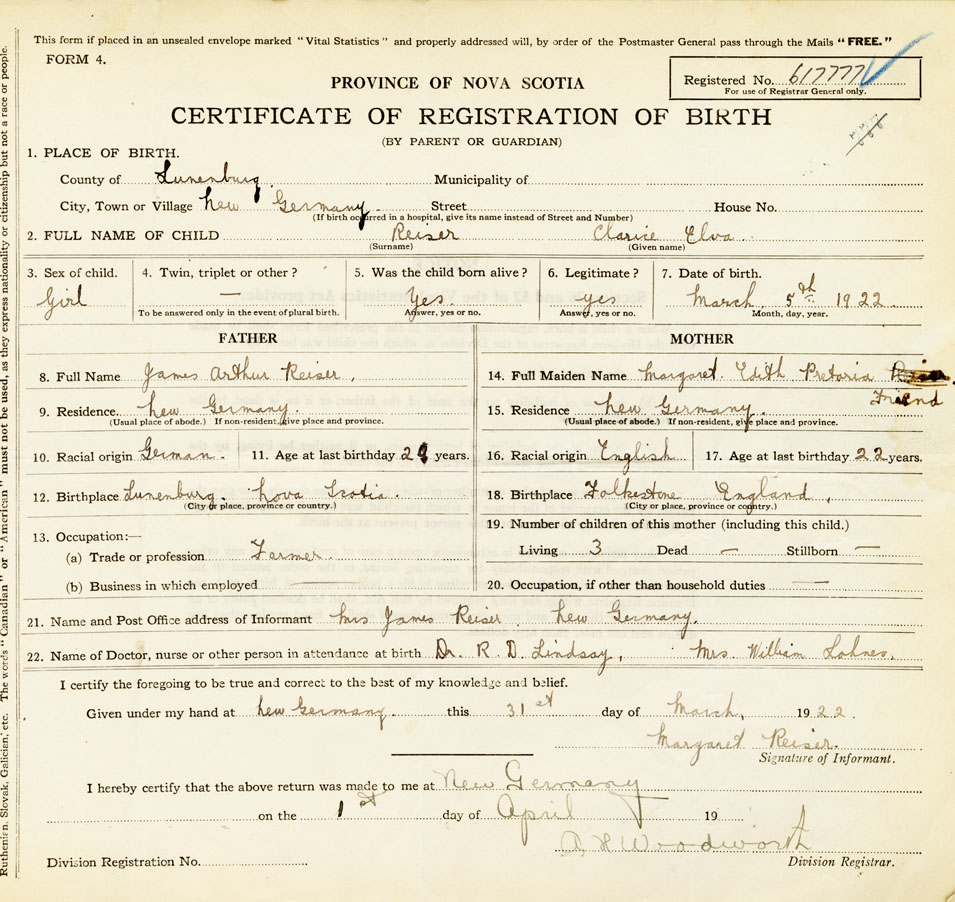 This form if placed in an unsealed envelope marked "Vital Statistics" and properly addressed will, by order of the Postmaster General pass through the Mails "FREE."
FORM 4.
Registered No. 617777
For use of Registrar General only.
PROVINCE OF NOVA SCOTIA
CERTIFICATE OF REGISTRATION OF BIRTH
(BY PARENT OR GUARDIAN)
1. PLACE OF BIRTH.
County of Lunenburg. Municipality of
City, Town or Village New Germany. Street House No.
(If birth occurred in a hospital, give its name instead of Street and Number)
2. FULL NAME OF CHILD Reiser Clarice Elva
(Surname) (Given name)
3. Sex of child. 4. Twin, triplet or other? 5. Was the child born alive? 6. Legitimate? 7. Date of birth.
Girl — Yes. yes March 5th 1922
To be answered only in the event of plural birth. Answer, yes or no. Answer, yes or no. Month, day, year.
FATHER MOTHER
8. Full Name James Arthur Reiser, 14. Full Maiden Name Margaret Edith Pretoria
Friend
9. Residence New Germany. 15. Residence New Germany.
(Usual place of abode.) If non-resident, give place and province. (Usual place of abode.) If non-resident, give place and province.
10. Racial origin German. 11. Age at last birthday years. 16. Racial origin English 17. Age at last birthday 22 years.
12. Birthplace Lunenburg. Nova Scotia. 18. Birthplace Folkestone England,
(City or place, province or country.) (City or place, province or country.)
13. Occupation:— 19. Number of children of this mother (including this child.)
(a) Trade or profession Farmer. Living 3 Dead — Stillborn —
(b) Business in which employed — 20. Occupation, if other than household duties —
21. Name and Post Office address of Informant Mrs James Reiser. New Germany.
22. Name of Doctor, nurse or other person in attendance at birth Dr. R. D. Lindsay, Mrs. William Lohnes.
I certify the foregoing to be true and correct to the best of my knowledge and belief.
Given under my hand at New Germany. this 31st day of March, 1922.
Margaret Reiser.
Signature of Informant.
I hereby certify that the above return was made to me at New Germany
on the 1st day of April 19
A H Woodworth
Division Registration No. Division Registrar.
Ruthenian, Slovak, Galician, etc. The words "Canadian" or "American" must not be used, as they express nationality or citizenship but not a race or people.